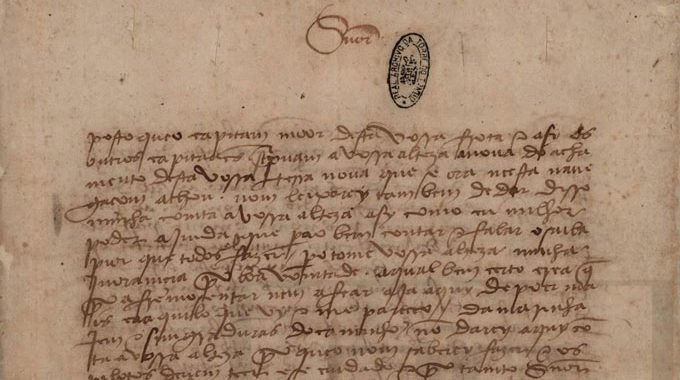 Snor
REAL ARCHIVO DA TORRE DO TOMBO
posto queo capitam moor desta vossa frota e asy os
outros capitaães screpuam avossa alteza anoua do acha
mento desta vossa terra noua que se ora neesta naue
gaçom achou. nom leixarey tambem de dar disso
minha comta avossa alteza asy como eu milhor
poder ajmda que pao bem contar e falar o saiba
pior que todos fazer. po tome vossa alteza minha
jnoramçia por boa vomtade. aqual bem certo crea q
por afremosentar nem afear aja aquy de poer ma
is caaquilo que vy e me pareceo. da marinha
jem e simgraduras do caminho nõ darey aquy cõ
ta avossa alteza por queo nom saberey fazer e os
pilotos deuem teer ese cuidado e por tanto Snor